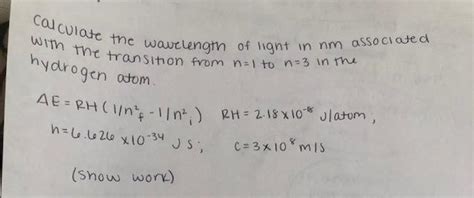 Calculate the wavelength of light in nm associated
with the transition from n=1 to n=3 in the
hydrogen atom.
ΔE = RH (1/n²f - 1/n²i) RH = 2.18 x 10⁻⁸ J/atom,
h=6.626 x10⁻³⁴ J s; C=3x10⁸ m/s
(show work)